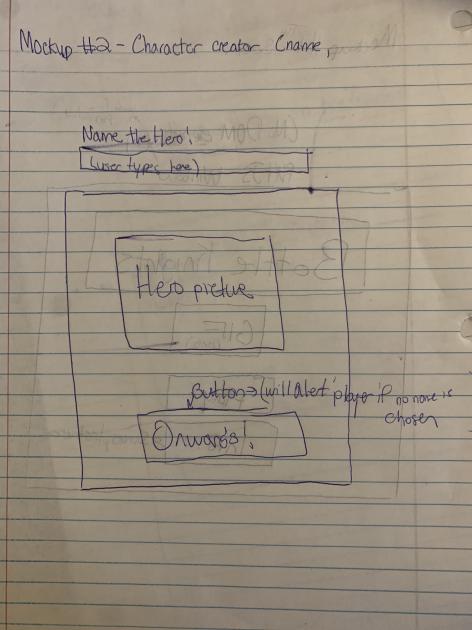 Mockup #2 - Character creator Cname,
Name the Hero!
(user types here)
Hero picture
Button → (will Alert player if no name is
chosen
Onwards!